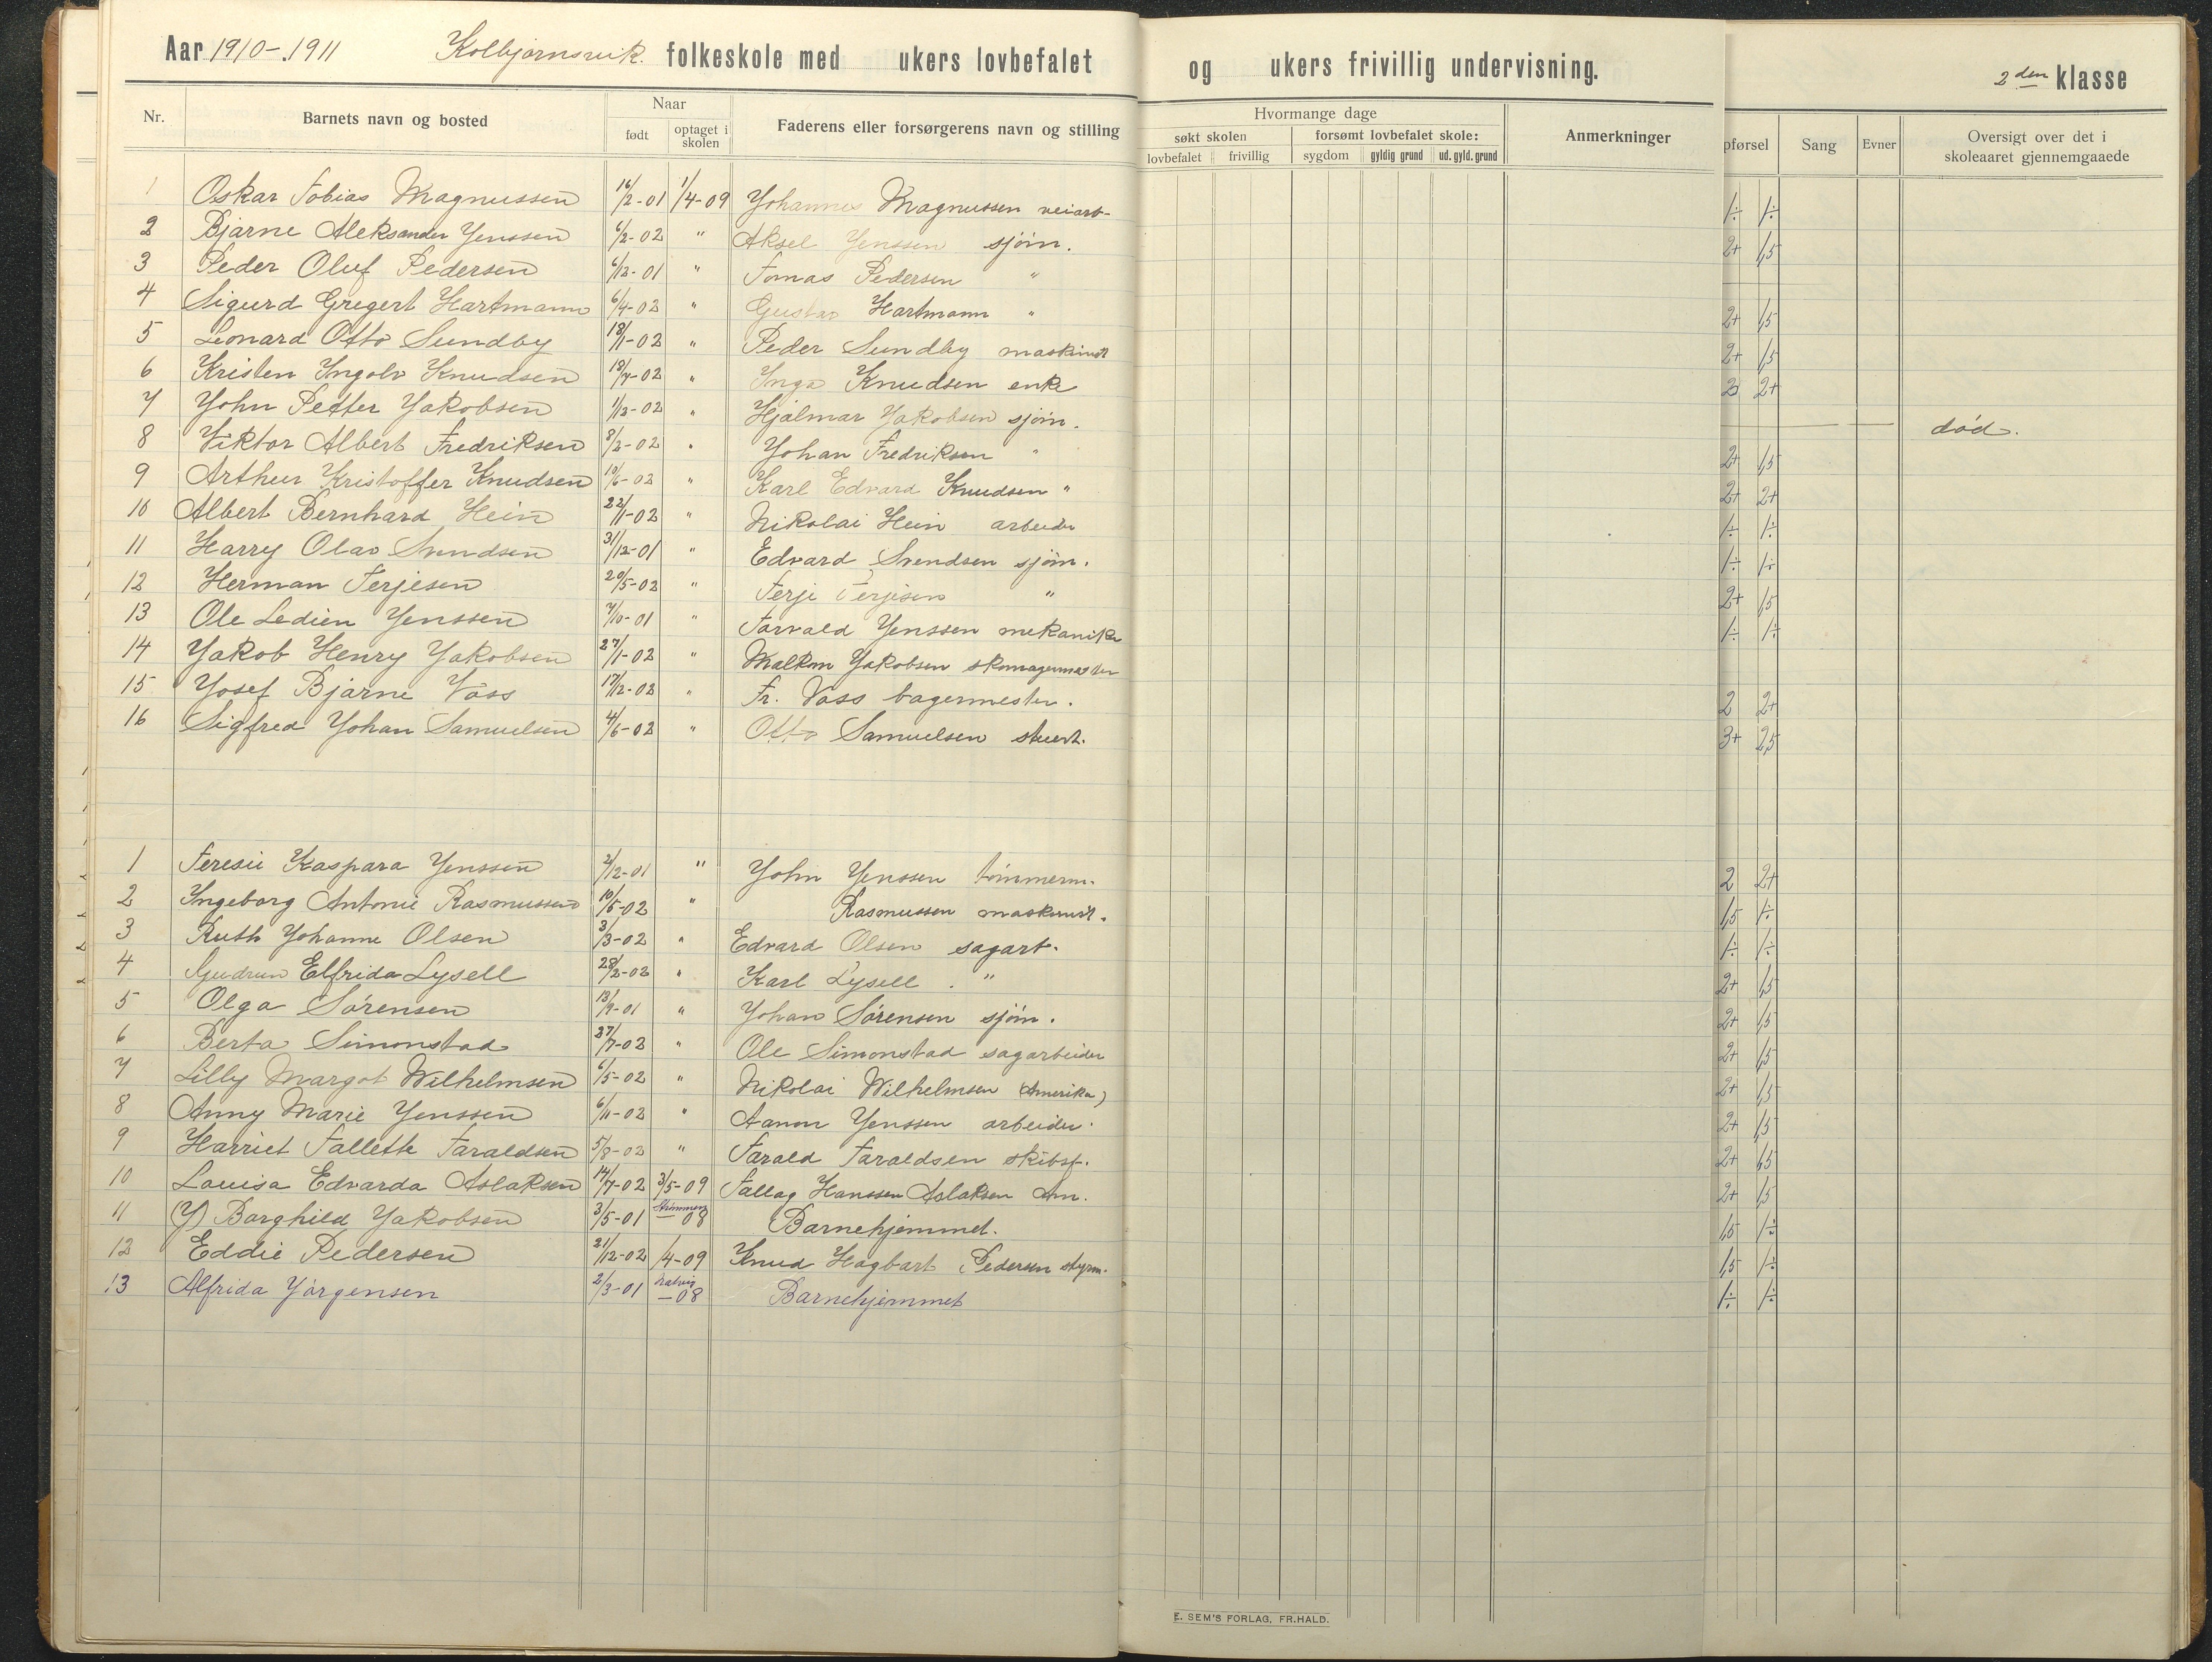 Aar 1910-.1911 Kolbjørnsvik. folkeskole med ukers lovbefalet og ukers frivillig undervisning. 2den klasse
Nr. Barnets navn og bosted Naar født optaget i skolen Faderens eller forsørgerens navn og stilling Hvormange dage søkt skolen lovbefalet frivillig forsømt lovbefalet skole: sygdom gyldig grund ud. gyld. grund Anmerkninger pførsel Sang Evner Oversigt over det i skoleaaret gjennemgaaede
1 Oskar Tobias Magnussen 16/2-01 1/4-09 Johannes Magnussen veiarb- 1÷ 1÷
2 Bjarne Aleksander Jenssen 6/2-02 " Aksel Jenssen sjøm. 2+ 1,5
3 Peder Oluf Pedersen 6/12-01 " Tomas Pedersen "
4 Sigurd Gregert Hartmann 6/4-02 " Gustav Hartmann " 2+ 1,5
5 Leonard Otto Sundby 18/1-02 " Peder Sundby maskinist 2+ 1,5
6 Kristen Ingolv Knudsen 18/7-02 " Inga Knudsen enke 2+
7 John Petter Jakobsen 1/3-02 " Hjalmar Jakobsen sjøm. død.
8 Viktor Albert Fredriksen 8/2-02 " Johan Fredriksen " 2+ 1,5
9 Arthur Kristoffer Knudsen 10/6-02 " Karl Edvard Knudsen " 2+ 2+
10 Albert Bernhard Hein 22/1-02 " Nikolai Hein arbeider 1÷ 1÷
11 Harry Olav Svendsen 31/12-01 " Edvard Svendsen sjøm. 1÷ 1÷
12 Herman Terjesen 20/5-02 " Terje Terjesen " 2+ 1,5
13 Ole Ledien Jenssen 7/10-01 " Torvald Jenssen mekaniker 1÷ 1÷
14 Jakob Henry Jakobsen 27/1-02 " Malkom Jakobsen skomagermester
15 Josef Bjarne Voss 17/2-02 " Fr. Voss bagermester. 2 2+
16 Sigfred Johan Samuelsen 4/6-02 " Otto Samuelsen stuert. 3+ 2,5
1 Teresie Kaspara Jenssen 2/12-01 " John Jenssen tømmerm. 2 2+
2 Ingeborg Antonie Rasmussen 10/5-02 " Rasmussen maskinist. 1,5 1÷
3 Ruth Johanne Olsen 3/3-02 " Edvard Olsen sagarb. 1÷ 1÷
4 Gudrun Elfrida Lysell 28/2-02 " Karl Lysell . " 2+ 1,5
5 Olga Sørensen 13/9-01 " Johan Sørensen sjøm. 2+ 1,5
6 Berta Simonstad 27/7-02 " Ole Simonstad sagarbeider 2+ 1,5
7 Lilly Margot Wilhelmsen 6/5-02 " Nikolai Wilhelmsen (Amerika) 2+ 1,5
8 Anny Marie Jenssen 6/11-02 " Aanon Jenssen arbeider. 2+ 1,5
9 Harriet Tallette Taraldsen 5/8-02 " Tarald Taraldsen skibsf. 2+ 1,5
10 Louisa Edvarda Aslaksen 14/7-02 3/5-09 Tallag Hanssen Aslaksen 2+ 1,5
11 (J) Borghild Jakobsen 3/5-01 -08 Barnehjemmet. 1,5 1÷
12 Eddie Pedersen 21/12-02 /4-09 Knud Hagbart Pedersen styrm. 1,5 1÷
13 Alfrida Jørgensen 2/3-01 -08 Barnehjemmet 1÷ 1÷
E. SEM'S FORLAG, FR.HALD.